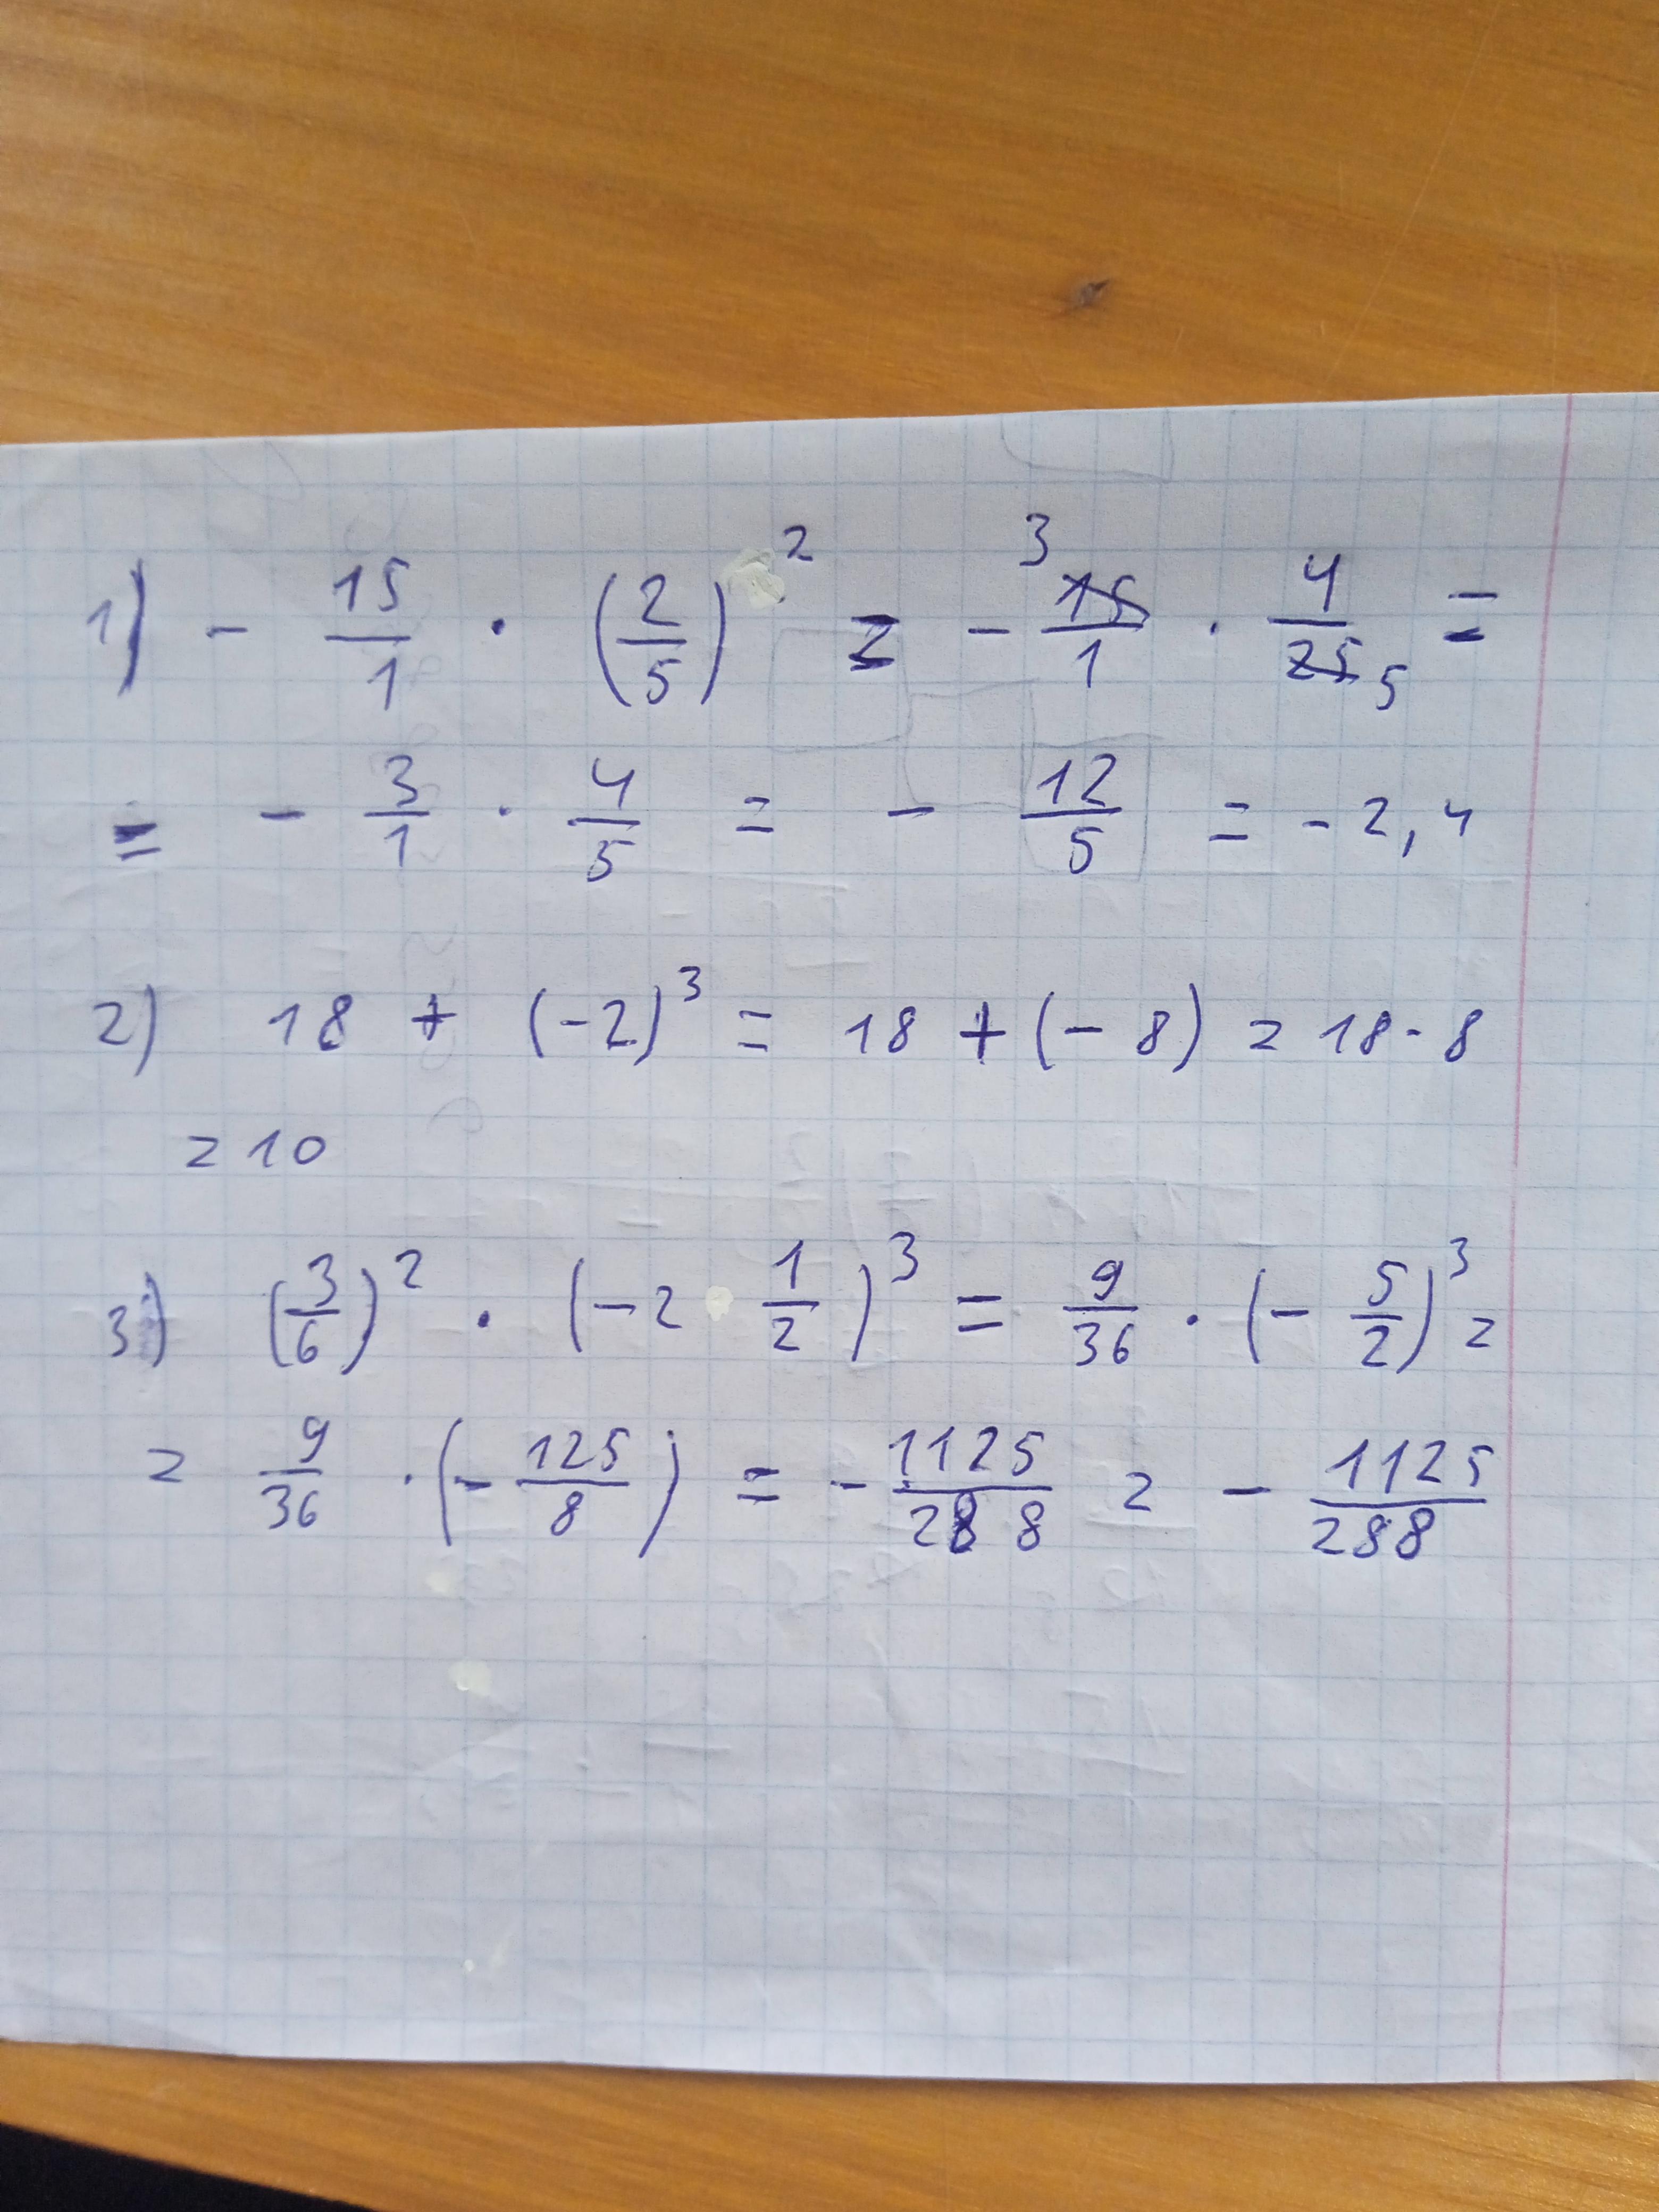 1) - 15/1 · (2/5)² = - 3 15/1 · 4/25 5 =
= - 3/1 · 4/5 = - 12/5 = - 2,4
2) 18 + (-2)³ = 18 + (- 8) = 18 - 8
= 10
3) (3/6)² · (-2 1/2)³ = 9/36 · (- 5/2)³ =
= 9/36 · (- 125/8) = - 1125/288 = - 1125/288